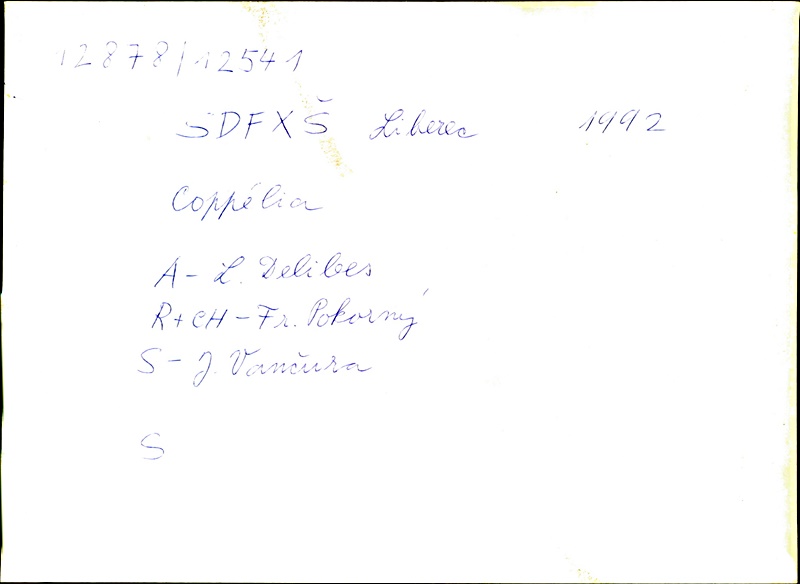 12878/12541
ŠDFXŠ Liberec 1992
Coppélia
A - L. Delibes
R+CH - Fr. Pokorný
S - J. Vančura
S